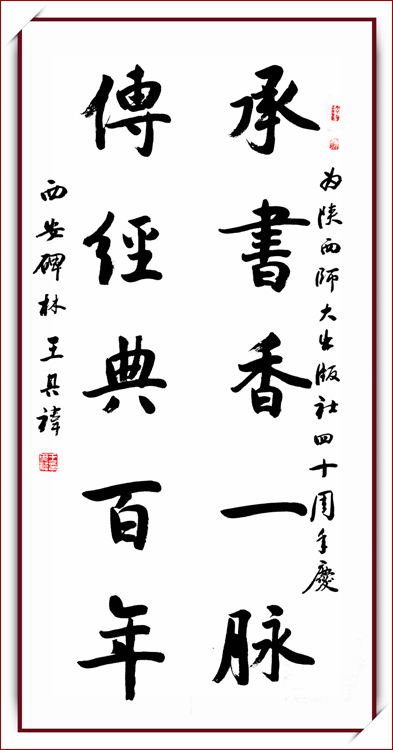 为陕西师大出版社四十周年庆
承書香一脉
傳經典百年
西安碑林王其祎